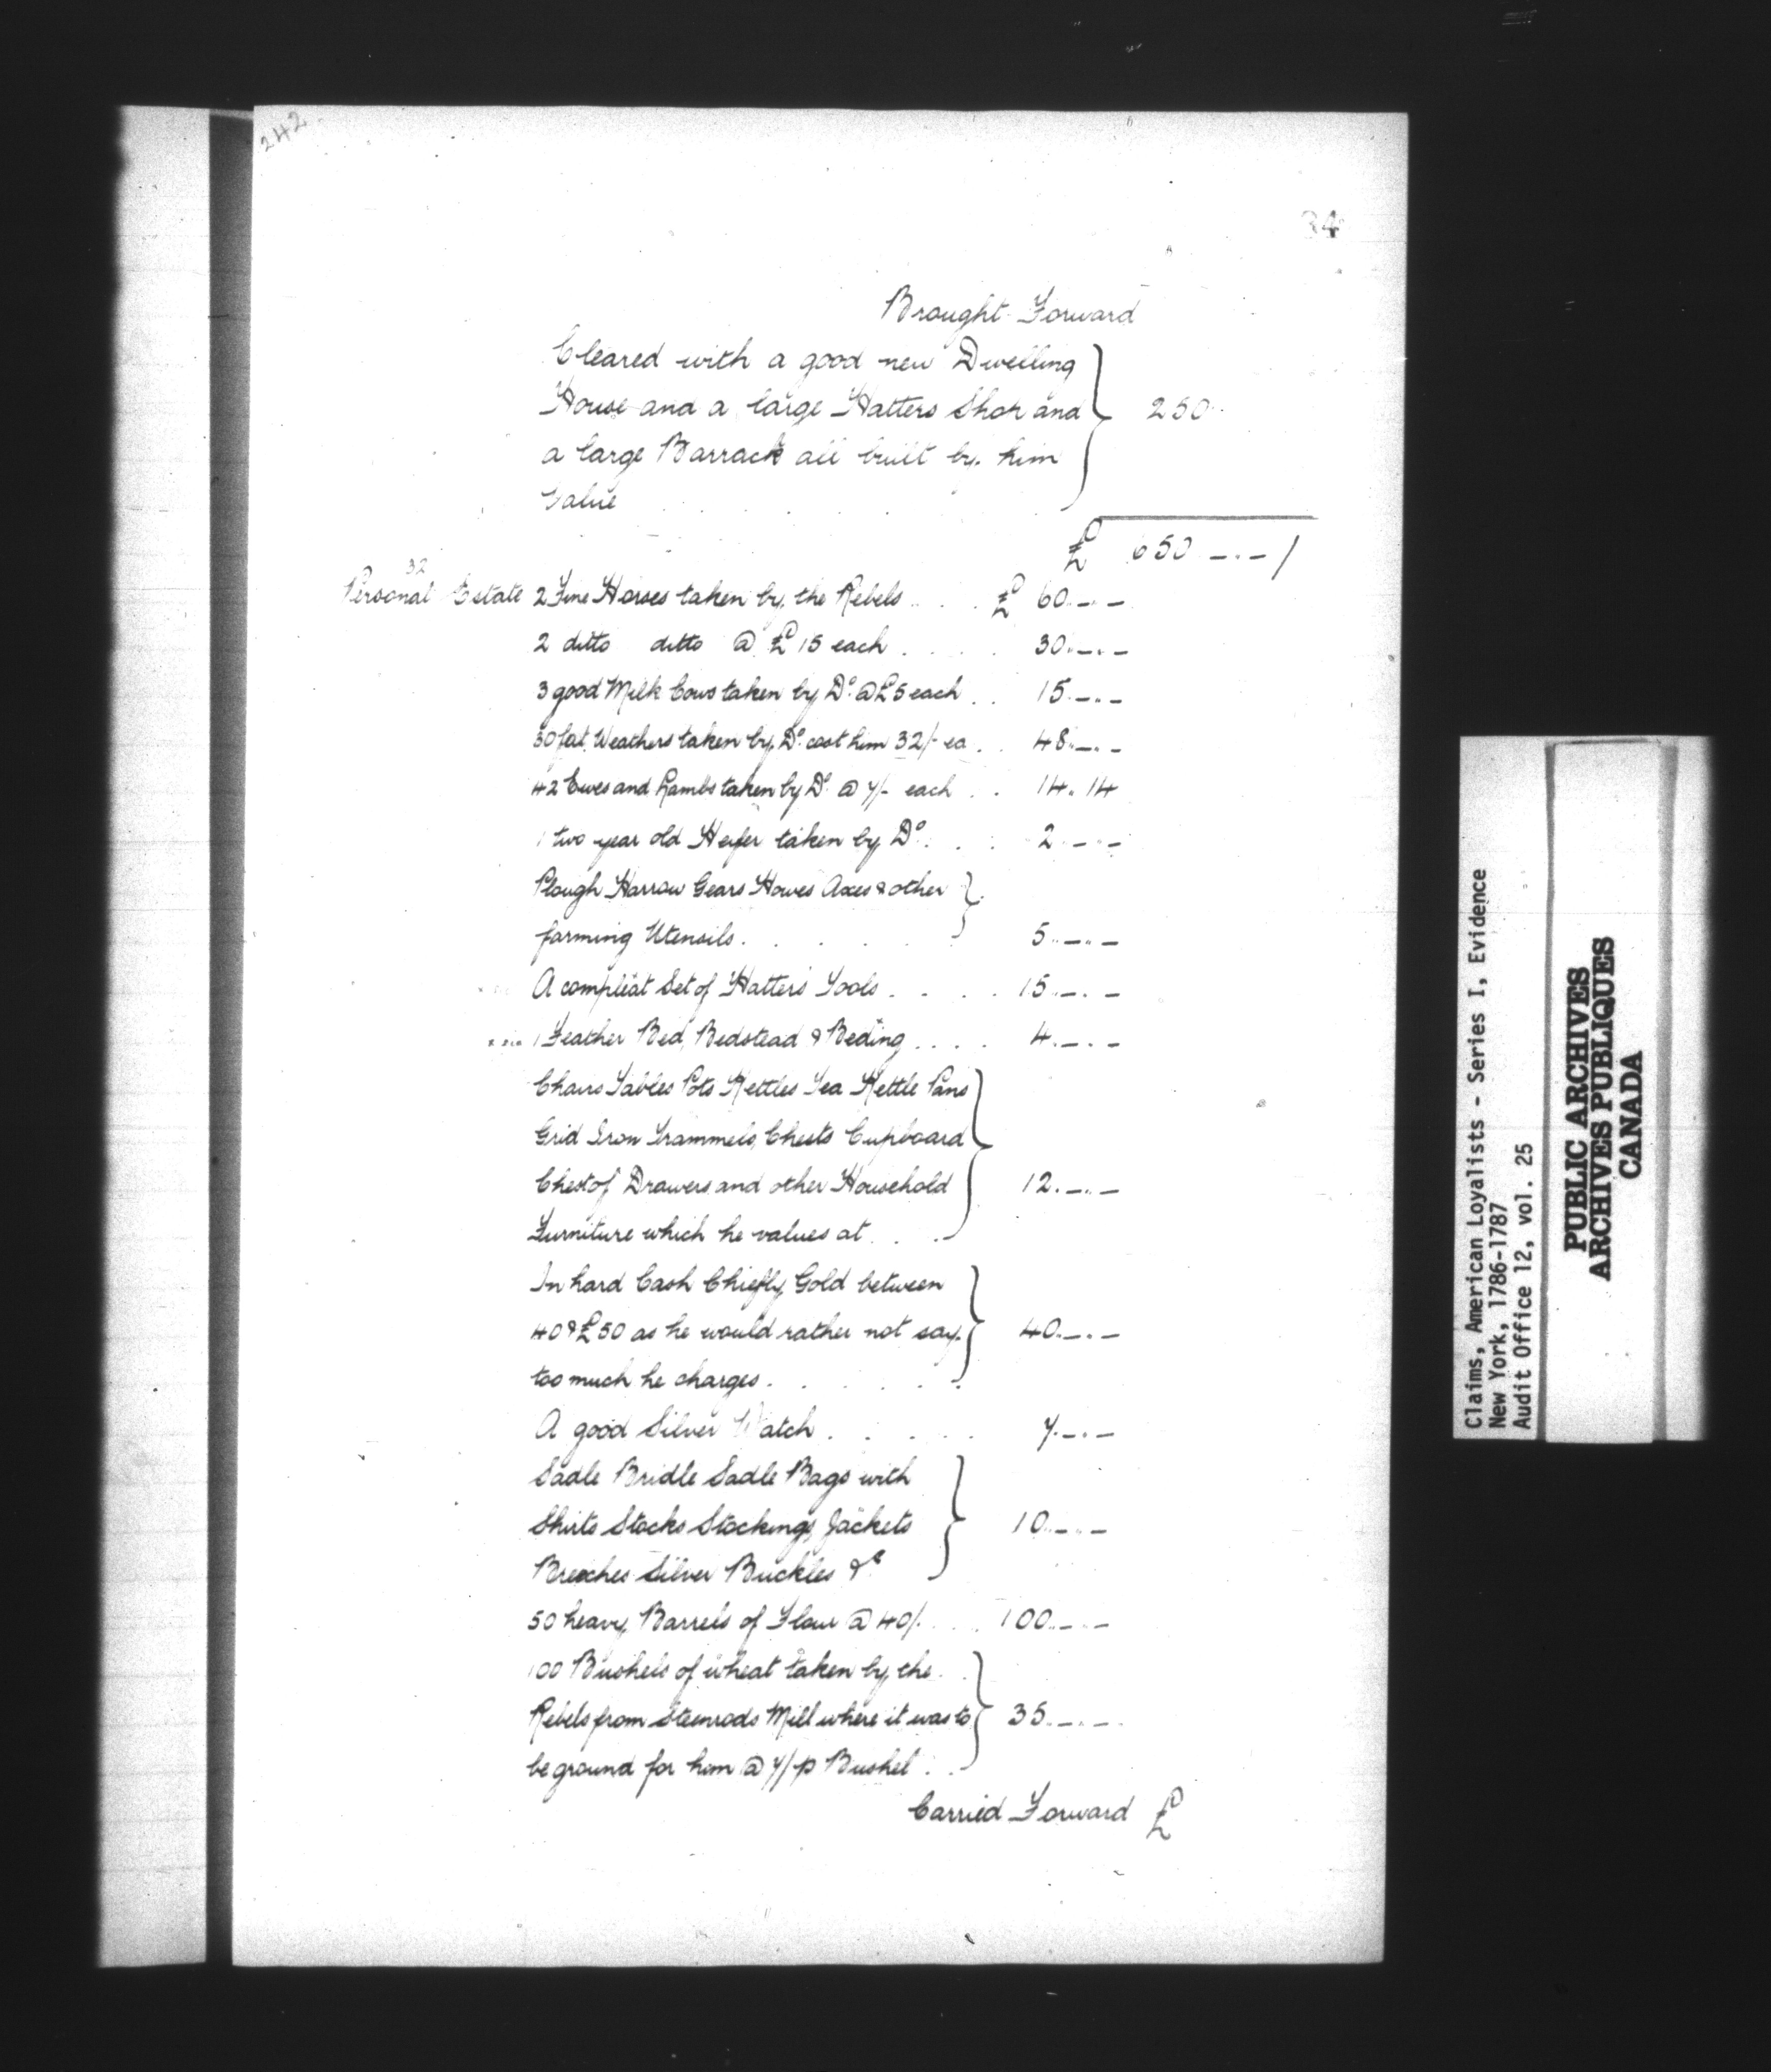 242
34
Brought Forward
Cleared with a good new Dwelling
House and a large Hatters Shop and 250
a large Barrack all built by him
Value
£ 650 -.-
32
Personal Estate 2 Fine Horses taken by the Rebels . . . £ 60.-.-
2 ditto ditto @ £15 each . . . . 30.-.-
3 good Milk Cows taken by Do. @ £5 each . . 15.-.-
30 fat Weathers taken by Do. cost him 32/- ea . . 48.-.-
42 Ewes and Lambs taken by Do. @ 7/- each . . 14.14
1 two year old Heifer taken by Do. . . 2.-.-
Plough Harrow Gears Howes Axes & other
farming Utensils . . . . . 5.-.-
A compleat Set of Hatters Tools . . . . 15.-.-
1 Feather Bed, Bedstead & Beding . . . . 4.-.-
Chairs Tables Pots Kettles Tea Kettle Pans
Grid Iron Trammels, Chests Cupboard
Chest of Drawers and other Household 12.-.-
Furniture which he values at . . .
In hard Cash Chiefly Gold between
40 & £50 as he would rather not say 40.-.-
too much he charges . . . . .
A good Silver Watch . . . . . 7.-.-
Sadle Bridle Sadle Bags with
Shirts Stocks Stockings Jackets 10.-.-
Breeches Silver Buckles &c
50 heavy Barrels of Flour @ 40/. . . . 100.-.-
100 Bushels of wheat taken by the
Rebels from Steenrods Mill where it was to 35.-.-
be ground for him @ 7/ p Bushel . .
Carried Forward £
Claims, American Loyalists - Series I, Evidence
New York, 1786-1787
Audit Office 12, vol. 25
PUBLIC ARCHIVES
ARCHIVES PUBLIQUES
CANADA